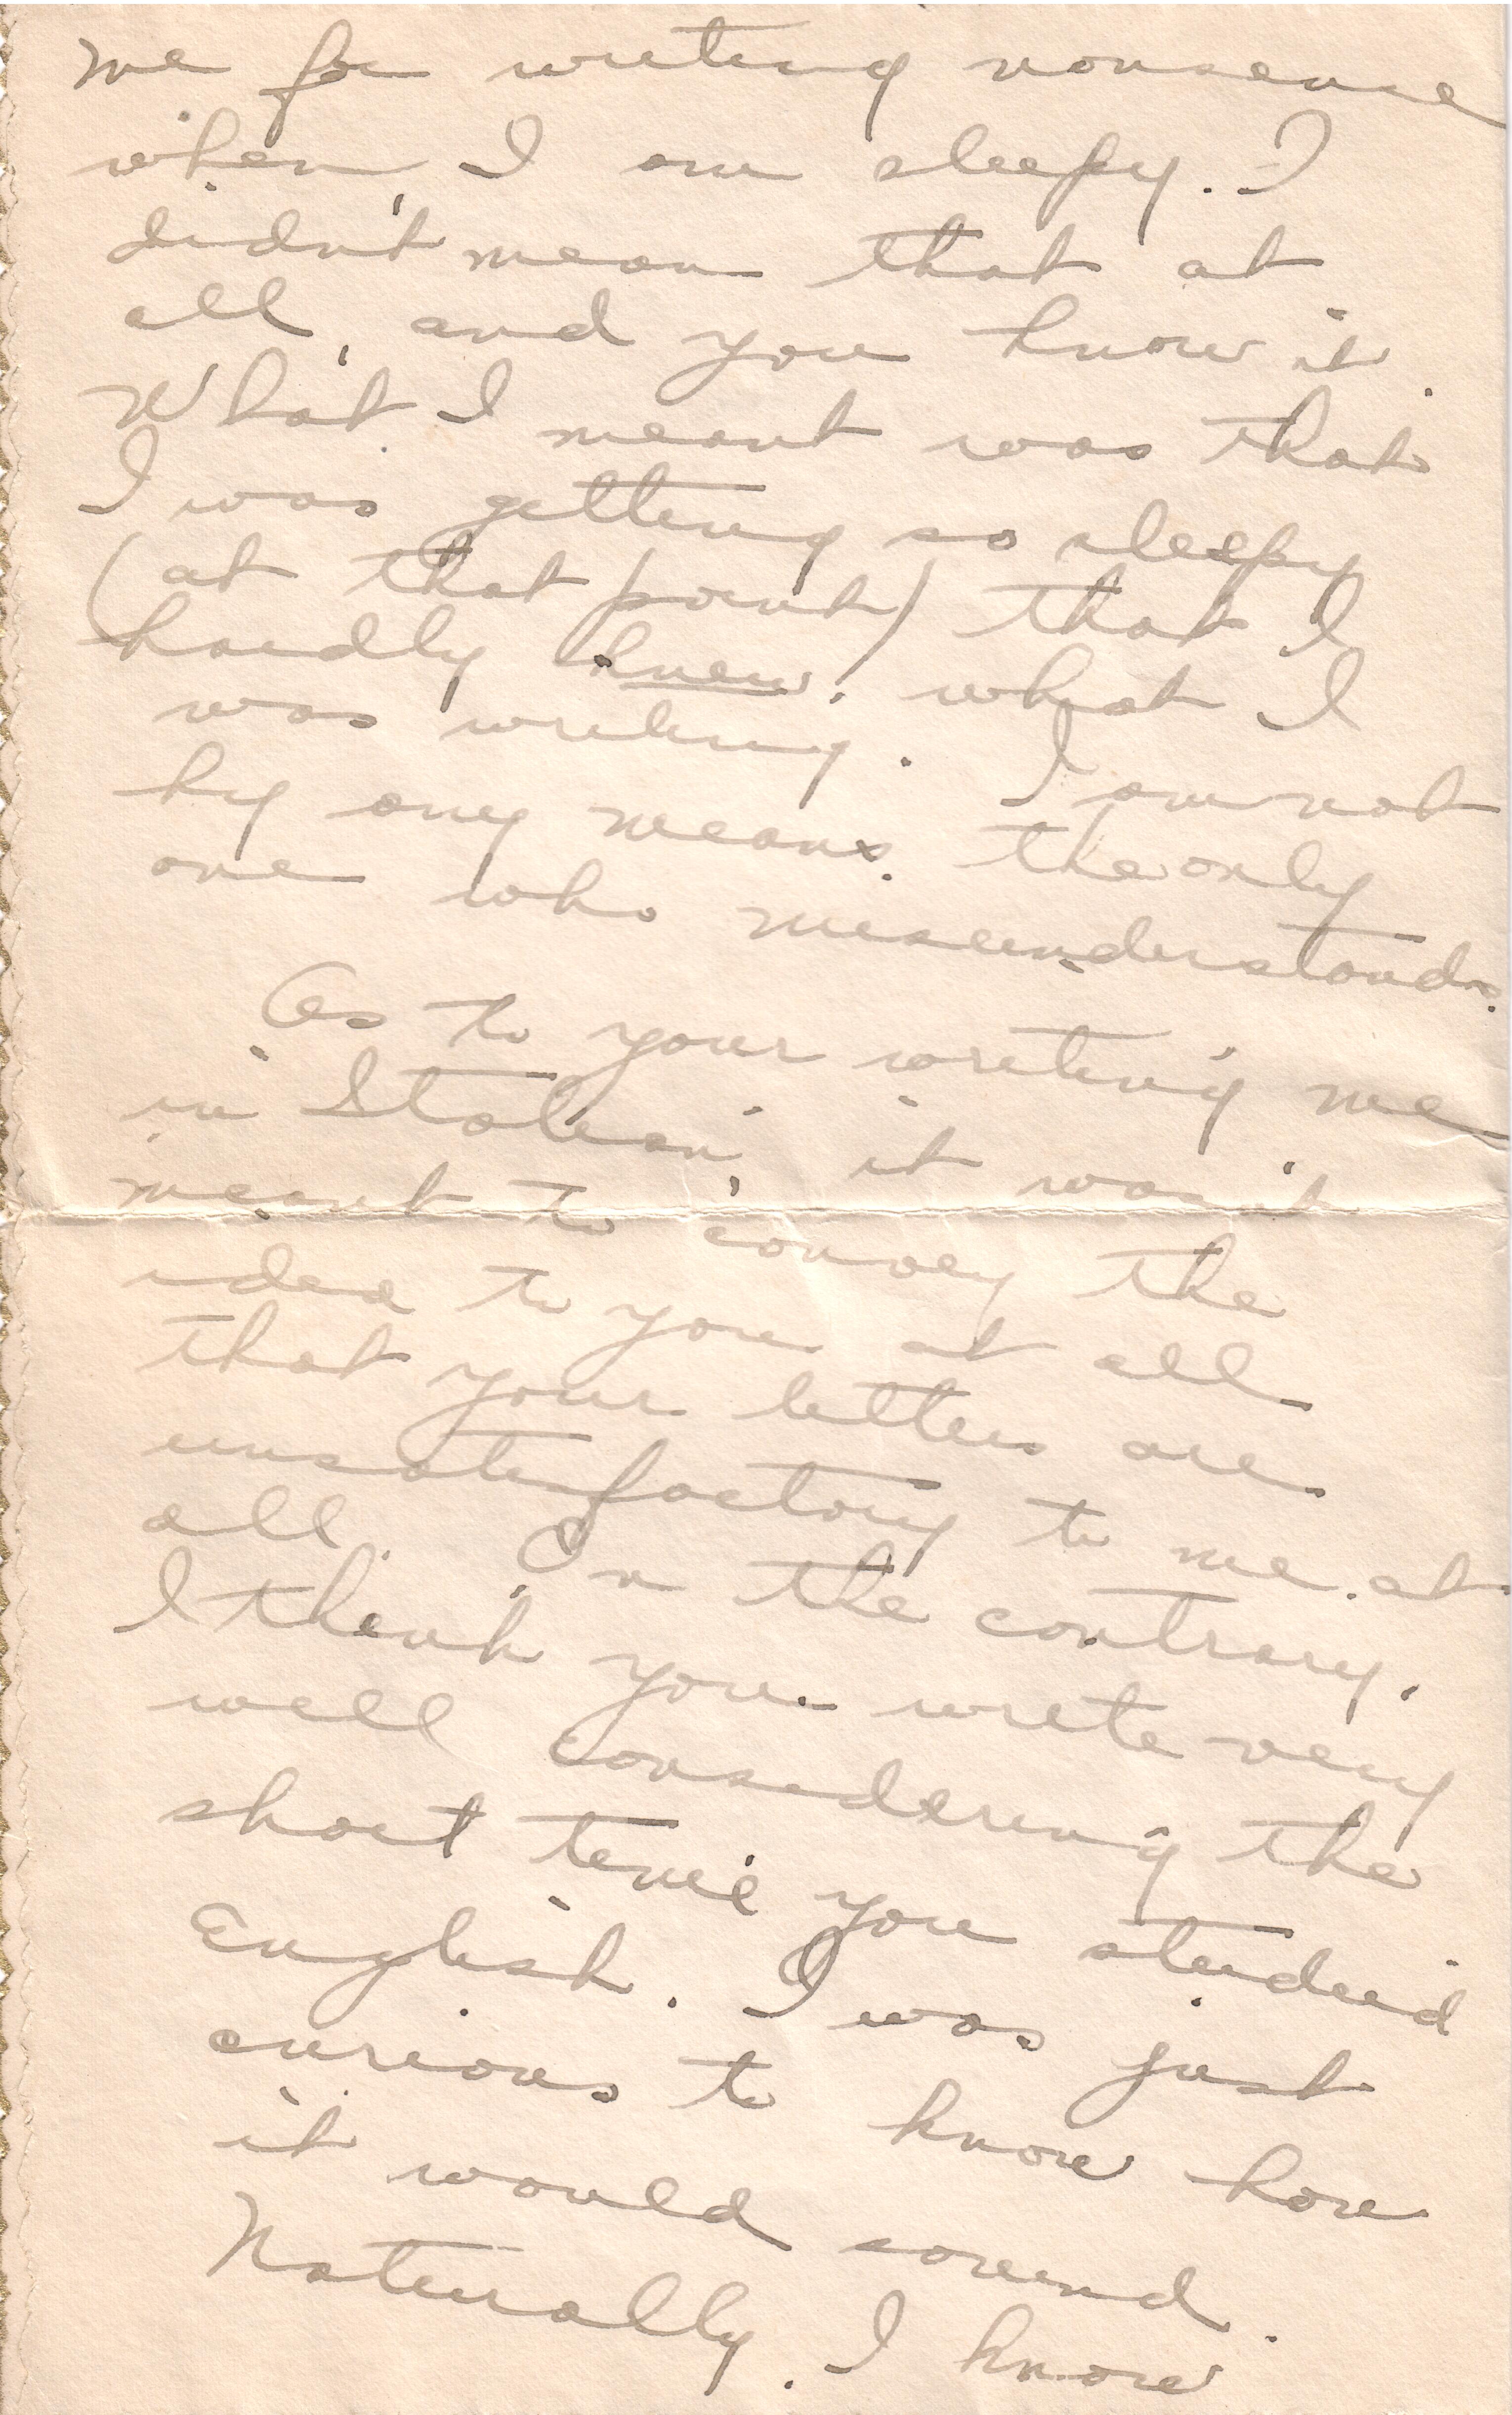 me for writing nonsense
when I am sleepy. I
didn't mean that at
all, and you know it.
What I meant was that
I was getting so sleepy
(at that point) that I
hardly knew what I
was writing. I am not
by any means the only
one who misunderstands.
As to your writing me
in Italian, it wasn't
meant to convey the
idea to you at all
that your letters are
unsatisfactory to me at
all. On the contrary,
I think you write very
well considering the
short time you studied
English. I was just
curious to know how
it would sound.
Naturally, I know